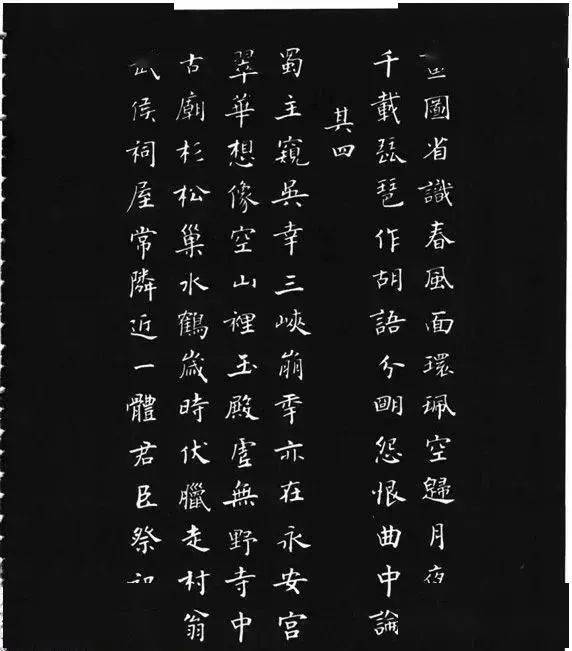 圖省識春風面環珮空歸月夜
千載琵琶作胡語分眀怨恨曲中論
其四
蜀主窺吳幸三峽崩年亦在永安宮
翠華想像空山裡玉殿虛無野寺中
古廟杉松巢水鶴歲時伏臘走村翁
武侯祠屋常隣近一體君臣祭祀